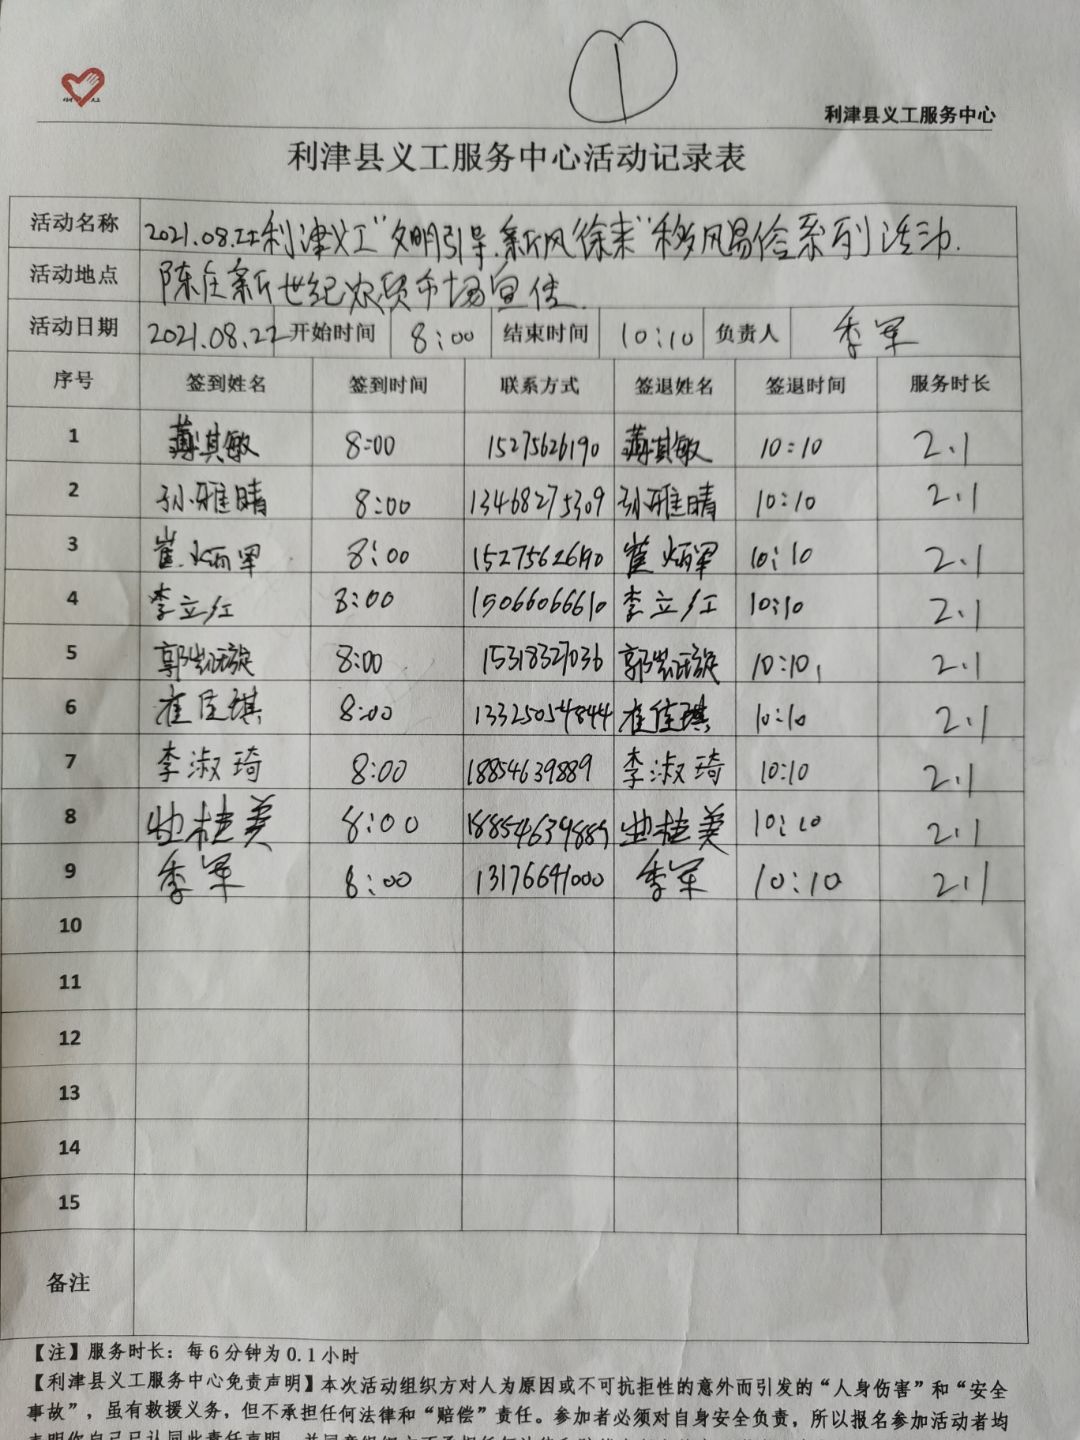 1
利津县义工服务中心
利津县义工服务中心活动记录表
活动名称 2021.08.22利津义工“文明引导.新风徐来”移风易俗系列活动.
活动地点 陈庄新世纪农贸市场宣传.
活动日期 2021.08.22 开始时间 8:00 结束时间 10:10 负责人 季军
序号 签到姓名 签到时间 联系方式 签退姓名 签退时间 服务时长
1 薄其敏 8:00 15275626190 薄其敏 10:10 2.1
2 孙雅晴 8:00 13468275309 孙雅晴 10:10 2.1
3 崔炳军 8:00 15275626190 崔炳军 10:10 2.1
4 李立红 8:00 15066066610 李立红 10:10 2.1
5 8:00 15318327036 10:10 2.1
6 崔佳琪 8:00 13325054844 崔佳琪 10:10 2.1
7 李淑琦 8:00 18854639889 李淑琦 10:10 2.1
8 曲桂美 8:00 18854639889 曲桂美 10:10 2.1
9 季军 8:00 13176641000 季军 10:10 2.1
10
11
12
13
14
15
备注
【注】服务时长：每6分钟为0.1小时
【利津县义工服务中心免责声明】本次活动组织方对人为原因或不可抗拒性的意外而引发的“人身伤害”和“安全
事故”，虽有救援义务，但不承担任何法律和“赔偿”责任。参加者必须对自身安全负责，所以报名参加活动者均